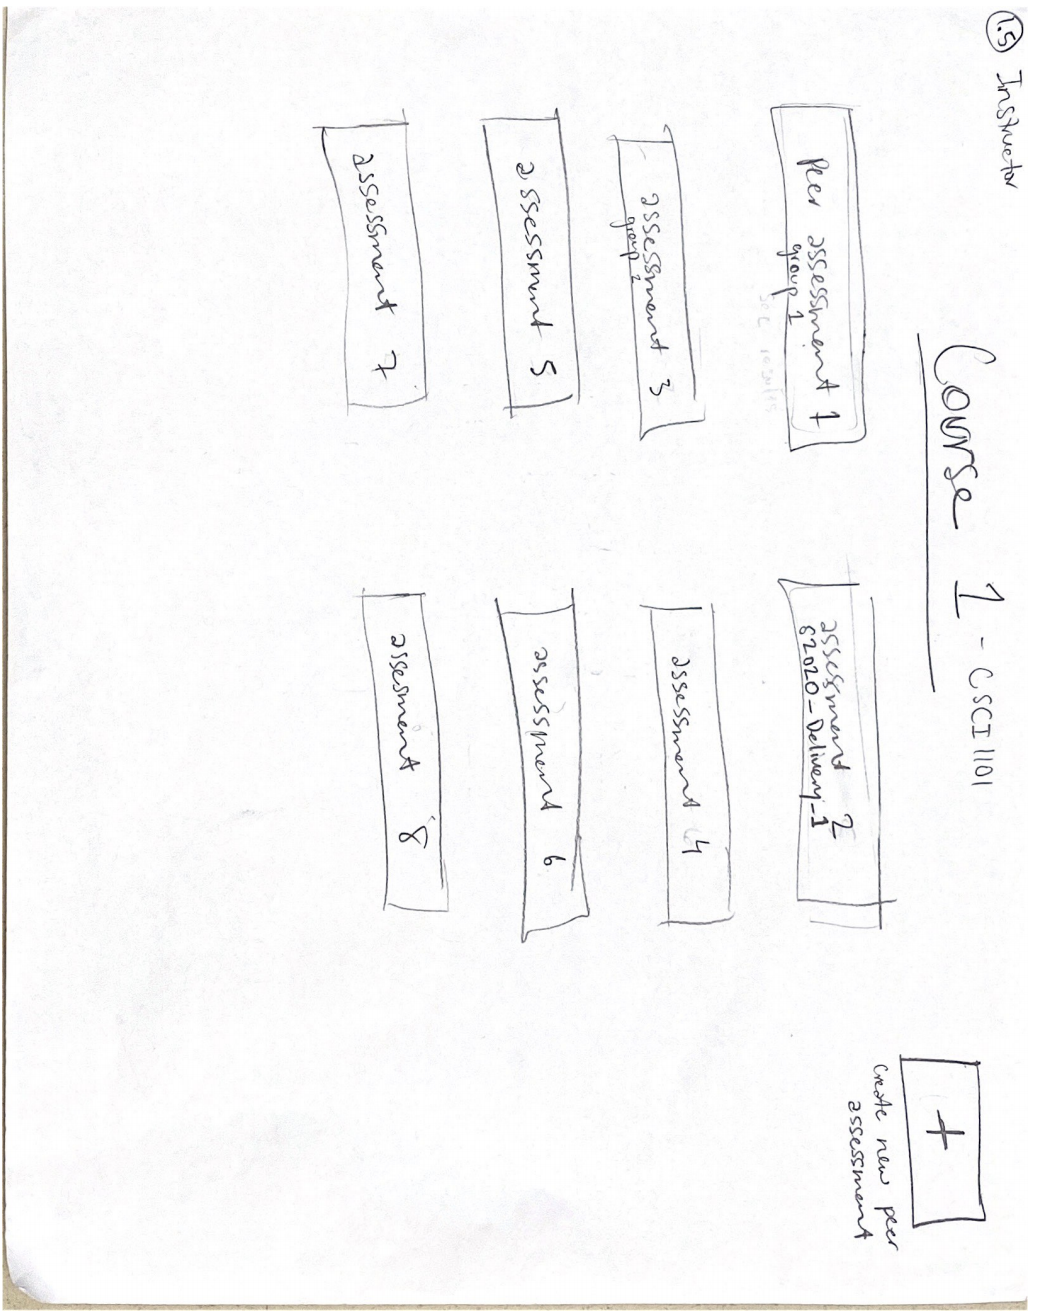 1.5 Instructor
Course 1 - CSCI 1101
+
create new peer
assessment
Peer assessment 1
group 1
see results
assessment 2
S2020-Delivery-1
assessment 3
group 2
assessment 4
assessment 5
assessment 6
assessment 7
assesment 8